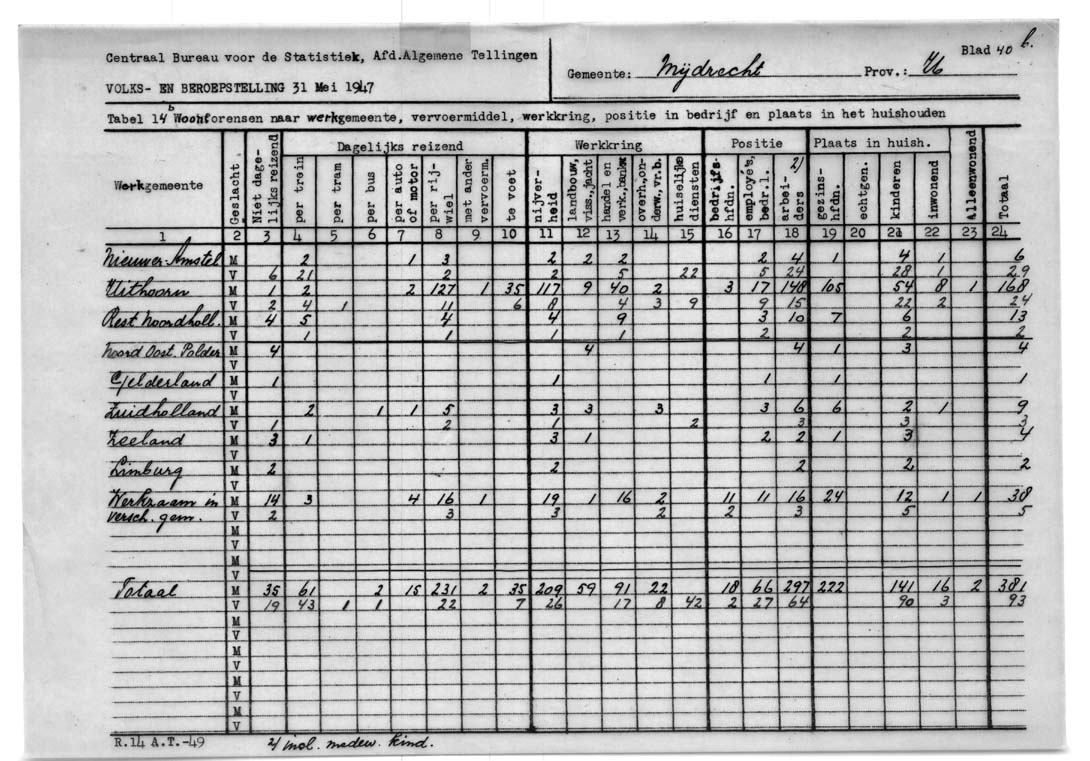 Centraal Bureau voor de Statistiek, Afd. Algemene Tellingen
Gemeente: Mijdrecht Prov.: Ut Blad 40 b.
VOLKS- EN BEROEPSTELLING 31 Mei 1947
Tabel 14 b Woonforensen naar werkgemeente, vervoermiddel, werkkring, positie in bedrijf en plaats in het huishouden
Werkgemeente Geslacht Niet dagelijks reizend Dagelijks reizend Werkkring Positie Plaats in huish. Alleenwonend Totaal
per trein per tram per bus per auto of motor per rijwiel met ander vervoerm. te voet nijverheid landbouw, viss., jacht handel en verk., bankw. overh., onderw., vr.b. huiselijke diensten bedrijfshfdn. employé's, bedr.l. arbeiders 2) gezinshfdn. echtgen. kinderen inwonend
1 2 3 4 5 6 7 8 9 10 11 12 13 14 15 16 17 18 19 20 21 22 23 24
Nieuwer-Amstel M 2 1 3 2 2 2 2 4 1 4 1 6
V 6 21 2 2 5 22 5 24 28 1 29
Uithoorn M 1 2 2 127 1 35 117 9 40 2 3 17 148 105 54 8 1 168
V 2 4 1 11 6 8 4 3 9 9 15 22 2 24
Rest Noordholl. M 4 5 4 4 9 3 10 7 6 13
V 1 1 1 1 2 2 2
Noord Oost. Polder M 4 4 4 1 3 4
V
Gelderland M 1 1 1 1 1
V
Zuidholland M 2 1 1 5 3 3 3 3 6 6 2 1 9
V 1 2 1 2 3 3 3
Zeeland M 3 1 3 1 2 2 1 3 4
V
Limburg M 2 2 2 2 2
V
Werkzaam in M 14 3 4 16 1 19 1 16 2 11 11 16 24 12 1 1 38
versch. gem. V 2 3 3 2 2 3 5 5
M
V
M
V
Totaal M 35 61 2 15 231 2 35 209 59 91 22 18 66 297 222 141 16 2 381
V 19 43 1 1 22 7 26 17 8 42 2 27 64 90 3 93
M
V
M
V
M
V
M
V
R.14 A.T.-49 2/ incl. medew. kind.